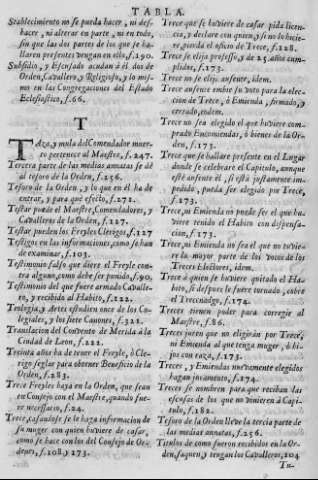 TABLA.
Stablecimiento no se pueda hacer, ni deshacer,
ni alterar en parte, ni en todo,
sin que las dos partes de los que se hallaren
presentes vengan en ello, f.190.
Subsidio, y Escusado acudan a el dos de
Orden, Cavallero, y Religioso, y lo mismo
en las Congregaciones del Estado
Eclesiastico, f.66.
T
TAza, y mula del Comendador muerto
pertenece al Maestro, f.247.
Tercera parte de las medias annatas se dè
al tesoro de la Orden, f.256.
Tesoro de la Orden, y lo que en el ha de
entrar, y para què efecto, f.271.
Testar puede el Maestre, Comendadores, y
Cavalleros de la Orden, f.127.
Testar pueden los Freyles Clerigos, f.127
Testigos en las informaciones, como se han
de examinar, f.103.
Testimonio falso que diere el Freyle contra
alguno, como debe ser punido, f.90.
Testimonio del que fuere armado Cavallero,
y recibido al Habito, f.222.
Teologia, y Artes estudien once de los Colegiales,
y los siete Canones, f.321.
Translacion del Convento de Merida à la
Ciudad de Leon, f.222.
Treinta años ha de tener el Freyle, ò Clerigo
seglar para obtener Beneficio de la
Orden, f.283.
Trece Freyles haya en la Orden, que sean
en Consejo con el Maestre, quando fuere
necessario, f.24.
Trece, casandose se le haga informacion de
su muger con quien huviere de casar,
como se hace con los del Consejo de Ordenes,
f.108 y 273.
Trece que se huviere de casar pida licencia,
y declare con quien, y si no lo hiciere,
pierda el oficio de Trece, f.128.
Trece se elija professo, y de 25. años cumplidos,
f.173.
Trece no se elija ausente, idem.
Trece ausente embie su voto para la eleccion
de Trece, ò Emienda, firmado, y
cerrado, endem.
Trece no sea elegido el que huviere comprado
Encomiendas, ò bienes de la Orden,
f.173.
Trece que se hallare presente en el Lugar
donde se celebrare el Capitulo, aunque
estè ausente de el, si està justamente impedido,
pueda ser elegido por Trece,
f.173.
Trece, ni Emienda no puede ser el que huviere
tenido el Habito con dispensacion,
f.173.
Trece, ni Emienda no sea el que no huviere
la mayor parte de los votos de los
Treces Electores, idem.
Trece à quien se huviere quitado el Habito,
si despues le fuere tornado, cobre
el Trecenazgo, f.174.
Treces tienen poder para corregir al
Maestre, f.86.
Treces juren que no elegiràn por Trece,
ni Emienda al que tenga muger, ò hijos
con raza, f.173.
Treces, y Emiendas nuevamente elegidos
hagan juramento, f.174.
Treces se nombren para que reciban las
escusas de los que no vinieren à Capitulo,
f.182.
Tesoro de la Orden lleve la tercia parte de
las medias annatas, f.256.
Titulos de como fueron recibidos en la Orden,
saquen, y tengan los Cavalleros, 104
Tu-